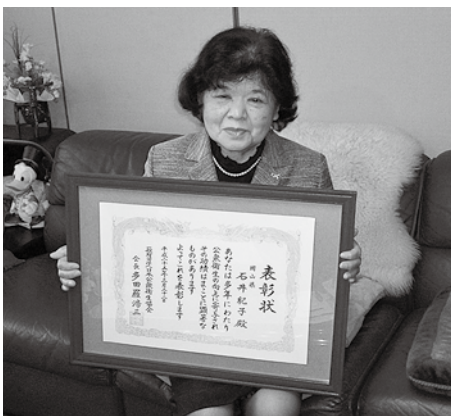 表彰状
岡山県
石井紀子殿
あなたは多年にわたり
公衆衛生の向上に寄与され
その功績はまことに顕著な
ものがあります
よってこれを表彰します
会長 多田羅浩三